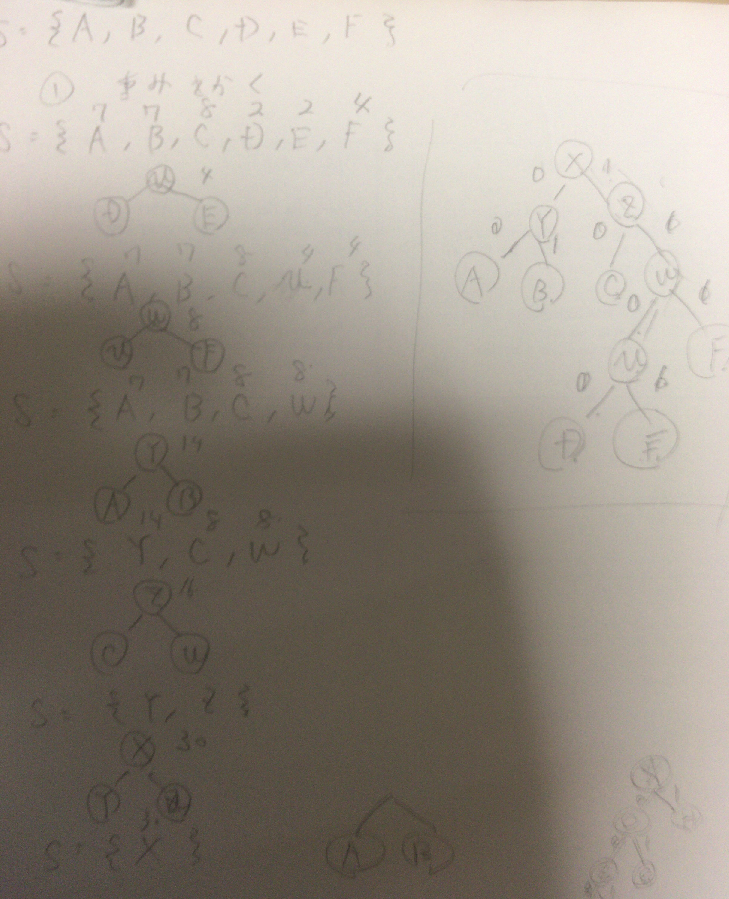 S = {A, B, C, D, E, F}
① おみをかく
7 7 8 2 2 4
S = {A, B, C, D, E, F}
U 4
D E
7 7 8 4 4
S = {A, B, C, U, F}
W 8
U F
7 7 8 8
S = {A, B, C, W}
Y 14
A B
14 8 8
S = {Y, C, W}
Z 16
C W
S = {Y, Z}
X 30
Y
30
S = {X}
A B
X
0 1
Y Z
0 1 0 1
A B C W
0 1
U F
0 1
D E